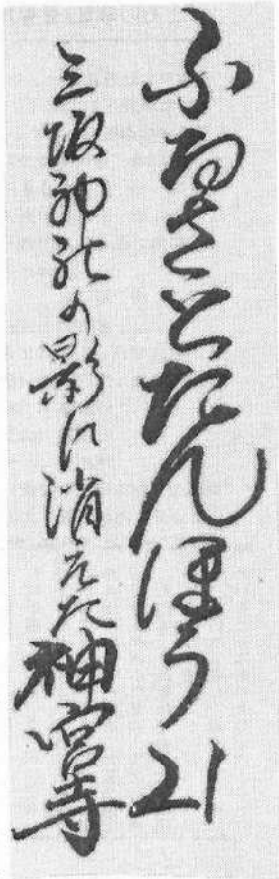 ふるさとたんぼう 21
三坂神社の影に消えた神宮寺